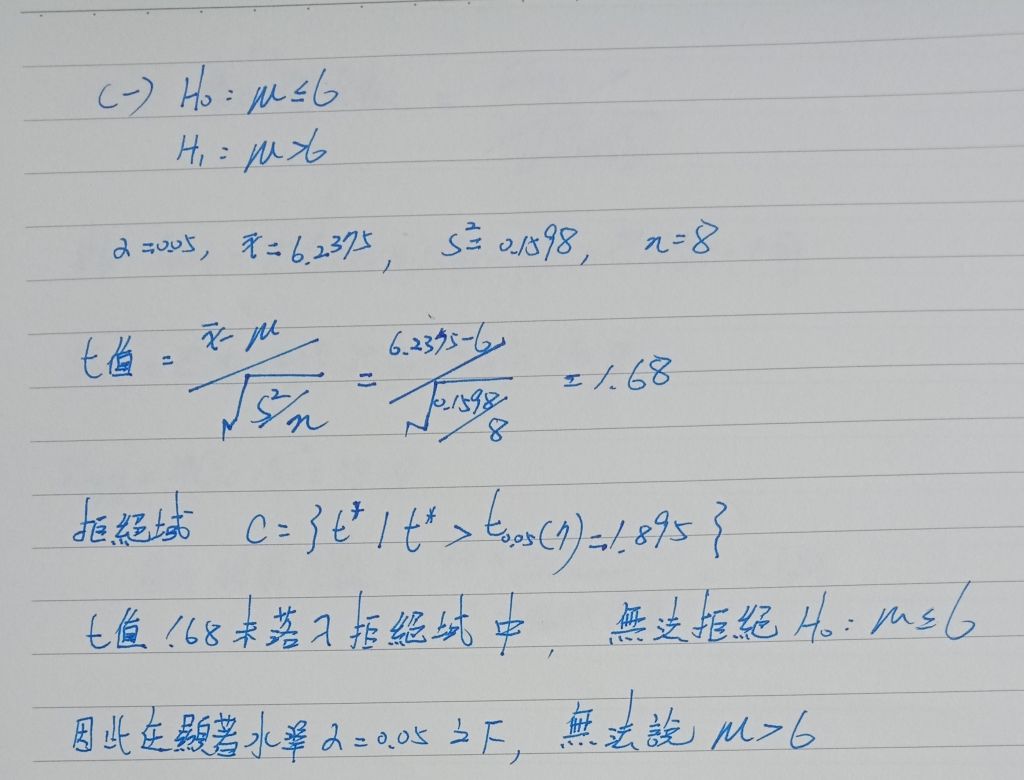 (一) H₀: μ≤6
H₁: μ>6
α=0.05, x̄=6.2375, S²=0.1598, n=8
t值 = (x̄-μ)/√(S²/n) = (6.2375-6)/√(0.1598/8) = 1.68
拒絕域 C={t*|t*>t₀.₀₅(7)=1.895}
t值 1.68未落入拒絕域中, 無法拒絕 H₀: μ≤6
因此在顯著水準α=0.05之下, 無法說 μ>6